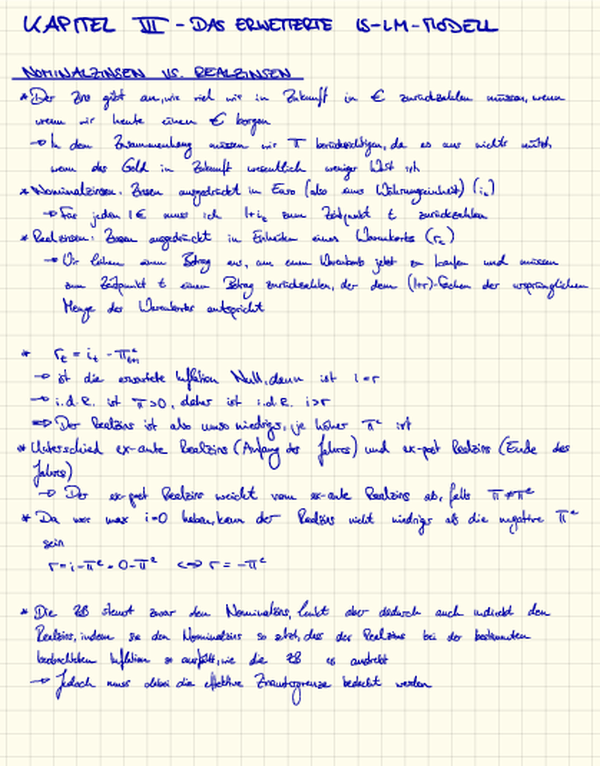 KAPITEL III - DAS ERWEITERTE IS-LM-MODELL
NOMINALZINSEN VS. REALZINSEN
* Der Zins gibt an, wie viel wir in Zukunft in € zurückzahlen müssen, wenn
wenn wir heute einen € borgen
→ In dem Zusammenhang müssen wir π berücksichtigen, da es uns nichts nützt,
wenn das Geld in Zukunft wesentlich weniger Wert ist
* Nominalzinsen: Zinsen ausgedrückt in Euro (also eins Währungseinheit) (i_t)
→ Für jeden 1€ muss ich 1+i_t zum Zeitpunkt t zurückzahlen
* Realzinsen: Zinsen ausgedrückt in Einheiten eines Warenkorbs (r_t)
→ Wir leihen einen Betrag aus, um einen Warenkorb jetzt zu kaufen und müssen
zum Zeitpunkt t einen Betrag zurückzahlen, der dem (1+r)-fachen der ursprünglichen
Menge des Warenkorbes entspricht
* r_t = i_t - π^e_{t+1}
→ ist die erwartete Inflation Null, dann ist i=r
→ i.d.R. ist π>0, daher ist i.d.R. i>r
⇒ Der Realzins ist also umso niedriger, je höher π^e ist
* Unterschied ex-ante Realzins (Anfang des Jahres) und ex-post Realzins (Ende des
Jahres)
→ Der ex-post Realzins weicht vom ex-ante Realzins ab, falls π≠π^e
* Da wir max i=0 haben, kann der Realzins nicht niedriger als die negative π^e
sein
r=i-π^e = 0-π^e ⇔ r = -π^e
* Die ZB steuert zwar den Nominalzins, lenkt aber dadurch auch indirekt den
Realzins, indem sie den Nominalzins so setzt, dass der Realzins bei der bestimmten
beobachteten Inflation so ausfällt, wie die ZB es anstrebt
→ Jedoch muss dabei die effektive Zinsuntergrenze bedacht werden